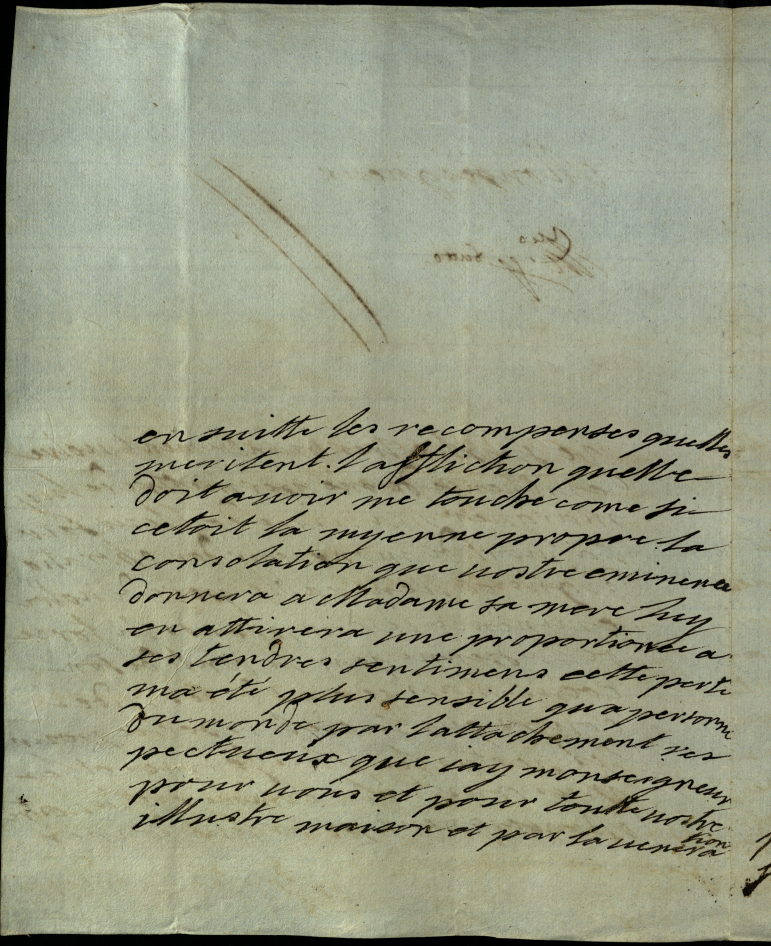 en suitte les recompenses quelles
meritent. l affliction quelle
doit auoir me touche come si
cetoit la myenne propre. la
consolation que uostre eminence
donnera a Madame sa mere luy
en attirera une proportionée a
ses tendres sentimens cette perte
ma été plus sensible qua personne
du monde par lattachement res
pectueux que iay monseigneur
pour uous et pour toutte uostre
illustre maison et par la uenera
tion